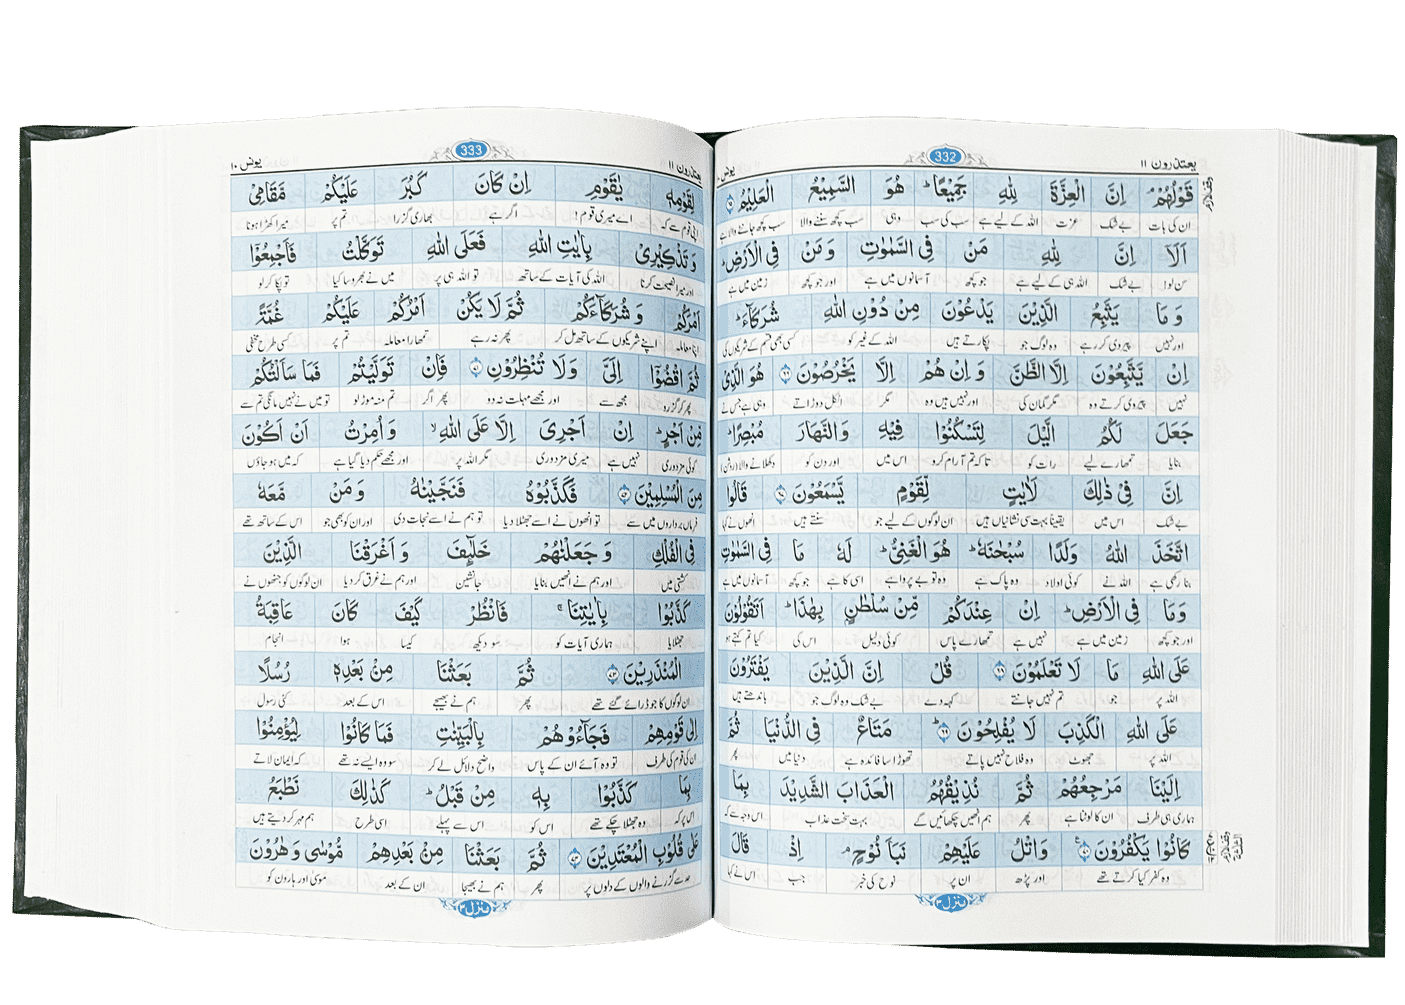 یعتذرون ۱۱ 332 یونس ۱۰
قَوْلُهُمْ ۘ اِنَّ الْعِزَّةَ لِلّٰهِ جَمِیْعًا ؕ هُوَ السَّمِیْعُ الْعَلِیْمُ ﴿۶۵﴾
ان کی بات بے شک عزت اللہ کے لیے ہے سب کی سب وہی سب کچھ سننے والا سب کچھ جاننے والا ہے
اَلَاۤ اِنَّ لِلّٰهِ مَنْ فِی السَّمٰوٰتِ وَ مَنْ فِی الْاَرْضِ ؕ
سن لو! بے شک اللہ ہی کے لیے ہے جو کچھ آسمانوں میں ہے اور جو کچھ زمین میں ہے
وَ مَا یَتَّبِعُ الَّذِیْنَ یَدْعُوْنَ مِنْ دُوْنِ اللّٰهِ شُرَكَآءَ ؕ
اور نہیں پیروی کر رہے وہ لوگ جو پکارتے ہیں اللہ کے غیر کو کسی بھی قسم کے شریکوں کی
اِنْ یَّتَّبِعُوْنَ اِلَّا الظَّنَّ وَ اِنْ هُمْ اِلَّا یَخْرُصُوْنَ ﴿۶۶﴾ هُوَ الَّذِیْ
نہیں پیروی کرتے وہ مگر گمان کی اور نہیں ہیں وہ مگر اٹکل دوڑاتے وہی ہے جس نے
جَعَلَ لَكُمُ الَّیْلَ لِتَسْكُنُوْا فِیْهِ وَ النَّهَارَ مُبْصِرًا ؕ
بنایا تمھارے لیے رات کو تاکہ تم آرام کرو اس میں اور دن کو دکھلانے والا (روشن)
اِنَّ فِیْ ذٰلِكَ لَاٰیٰتٍ لِّقَوْمٍ یَّسْمَعُوْنَ ﴿۶۷﴾ قَالُوا
بے شک اس میں یقیناً بہت سی نشانیاں ہیں ان لوگوں کے لیے جو سنتے ہیں انھوں نے کہا
اتَّخَذَ اللّٰهُ وَلَدًا سُبْحٰنَهٗ ؕ هُوَ الْغَنِیُّ ؕ لَهٗ مَا فِی السَّمٰوٰتِ
بنا رکھی ہے اللہ نے کوئی اولاد وہ پاک ہے وہ تو بے پروا ہے اسی کا ہے جو کچھ آسمانوں میں ہے
وَ مَا فِی الْاَرْضِ ؕ اِنْ عِنْدَكُمْ مِّنْ سُلْطٰنٍۭ بِهٰذَا ؕ اَتَقُوْلُوْنَ
اور جو کچھ زمین میں ہے نہیں ہے تمھارے پاس کوئی دلیل اس کی کیا تم کہتے ہو
عَلَی اللّٰهِ مَا لَا تَعْلَمُوْنَ ﴿۶۸﴾ قُلْ اِنَّ الَّذِیْنَ یَفْتَرُوْنَ
اللہ پر جو تم نہیں جانتے کہہ دے بے شک وہ لوگ جو باندھتے ہیں
عَلَی اللّٰهِ الْكَذِبَ لَا یُفْلِحُوْنَ ﴿۶۹﴾ مَتَاعٌ فِی الدُّنْیَا ثُمَّ
اللہ پر جھوٹ وہ فلاح نہیں پاتے تھوڑا سا فائدہ ہے دنیا میں پھر
اِلَیْنَا مَرْجِعُهُمْ ثُمَّ نُذِیْقُهُمُ الْعَذَابَ الشَّدِیْدَ بِمَا
ہماری ہی طرف ان کا لوٹنا ہے پھر ہم انھیں چکھائیں گے بہت سخت عذاب اس وجہ سے کہ
كَانُوْا یَكْفُرُوْنَ ﴿۷۰﴾ وَ اتْلُ عَلَیْهِمْ نَبَاَ نُوْحٍ ۘ اِذْ قَالَ
وہ کفر کیا کرتے تھے اور پڑھ ان پر نوح کی خبر جب اس نے کہا
منزل ۳
یعتذرون ۱۱ 333 یونس ۱۰
لِقَوْمِهٖ یٰقَوْمِ اِنْ كَانَ كَبُرَ عَلَیْكُمْ مَّقَامِیْ
اپنی قوم سے کہ اے میری قوم! اگر ہے بھاری گزرا تم پر میرا کھڑا ہونا
وَ تَذْكِیْرِیْ بِاٰیٰتِ اللّٰهِ فَعَلَی اللّٰهِ تَوَكَّلْتُ فَاَجْمِعُوْۤا
اور میرا نصیحت کرنا اللہ کی آیات کے ساتھ تو اللہ ہی پر میں نے بھروسا کیا تو پکا کر لو
اَمْرَكُمْ وَ شُرَكَآءَكُمْ ثُمَّ لَا یَكُنْ اَمْرُكُمْ عَلَیْكُمْ غُمَّةً
اپنا معاملہ اپنے شریکوں کے ساتھ مل کر پھر نہ رہے تمھارا معاملہ تم پر کسی طرح مخفی
ثُمَّ اقْضُوْۤا اِلَیَّ وَ لَا تُنْظِرُوْنِ ﴿۷۱﴾ فَاِنْ تَوَلَّیْتُمْ فَمَا سَاَلْتُكُمْ
پھر کر گزرو مجھ سے اور مجھے مہلت نہ دو پھر اگر تم منہ موڑ لو تو میں نے نہیں مانگی تم سے
مِّنْ اَجْرٍ ؕ اِنْ اَجْرِیَ اِلَّا عَلَی اللّٰهِ ۙ وَ اُمِرْتُ اَنْ اَكُوْنَ
کوئی مزدوری نہیں ہے میری مزدوری مگر اللہ پر اور مجھے حکم دیا گیا ہے کہ میں ہو جاؤں
مِنَ الْمُسْلِمِیْنَ ﴿۷۲﴾ فَكَذَّبُوْهُ فَنَجَّیْنٰهُ وَ مَنْ مَّعَهٗ
فرماں برداروں میں سے تو انھوں نے اسے جھٹلا دیا تو ہم نے اسے نجات دی اور ان کو بھی جو اس کے ساتھ تھے
فِی الْفُلْكِ وَ جَعَلْنٰهُمْ خَلٰٓىِٕفَ وَ اَغْرَقْنَا الَّذِیْنَ
کشتی میں اور ہم نے انھیں بنایا جانشین اور ہم نے غرق کر دیا ان لوگوں کو جنھوں نے
كَذَّبُوْا بِاٰیٰتِنَا ۚ فَانْظُرْ كَیْفَ كَانَ عَاقِبَةُ
جھٹلایا ہماری آیات کو سو دیکھ کیسا ہوا انجام
الْمُنْذَرِیْنَ ﴿۷۳﴾ ثُمَّ بَعَثْنَا مِنْۢ بَعْدِهٖ رُسُلًا
ان لوگوں کا جو ڈرائے گئے تھے پھر ہم نے بھیجے اس کے بعد کئی رسول
اِلٰی قَوْمِهِمْ فَجَآءُوْهُمْ بِالْبَیِّنٰتِ فَمَا كَانُوْا لِیُؤْمِنُوْا
ان کی قوم کی طرف تو وہ آئے ان کے پاس واضح دلائل لے کر سو وہ ایسے نہ تھے کہ ایمان لاتے
بِمَا كَذَّبُوْا بِهٖ مِنْ قَبْلُ ؕ كَذٰلِكَ نَطْبَعُ
اس پر کہ وہ جھٹلا چکے تھے اس کو اس سے پہلے اسی طرح ہم مہر کر دیتے ہیں
عَلٰی قُلُوْبِ الْمُعْتَدِیْنَ ﴿۷۴﴾ ثُمَّ بَعَثْنَا مِنْۢ بَعْدِهِمْ مُّوْسٰی وَ هٰرُوْنَ
حد سے گزرنے والوں کے دلوں پر پھر ہم نے بھیجا ان کے بعد موسیٰ اور ہارون کو
منزل ۳